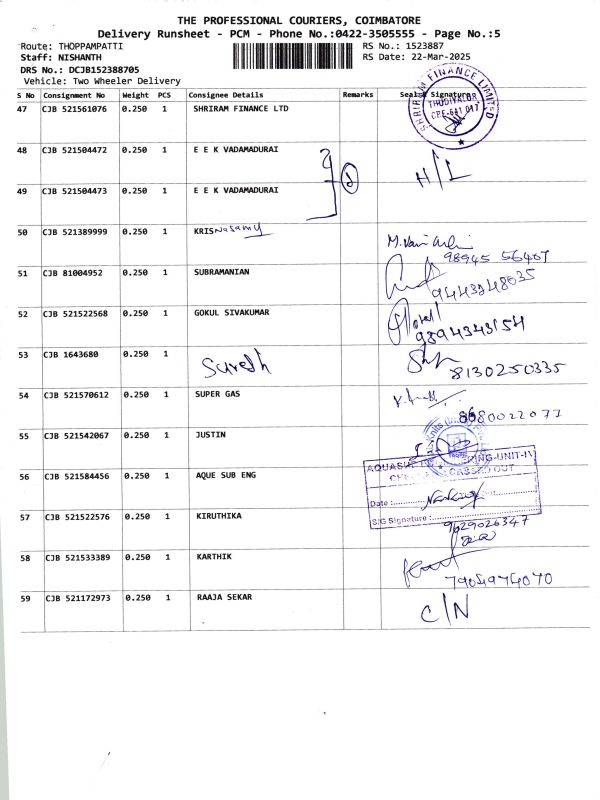 THE PROFESSIONAL COURIERS, COIMBATORE
Delivery Runsheet - PCM - Phone No.:0422-3505555 - Page No.:5
Route: THOPPAMPATTI RS No.: 1523887
Staff: NISHANTH RS Date: 22-Mar-2025
DRS No.: DCJB152388705
Vehicle: Two Wheeler Delivery
S No Consignment No Weight PCS Consignee Details Remarks Seal& Signature
47 CJB 521561076 0.250 1 SHRIRAM FINANCE LTD
SHRIRAM FINANCE LIMITED
THUDIYALUR
CBE-641 017
48 CJB 521504472 0.250 1 E E K VADAMADURAI
H/L
49 CJB 521504473 0.250 1 E E K VADAMADURAI
50 CJB 521389999 0.250 1 KRISNasamy
98945 56467
51 CJB 81004952 0.250 1 SUBRAMANIAN
9443248035
52 CJB 521522568 0.250 1 GOKUL SIVAKUMAR
53 CJB 1643680 0.250 1 Suresh
8130250335
54 CJB 521570612 0.250 1 SUPER GAS
55 CJB 521542067 0.250 1 JUSTIN
56 CJB 521584456 0.250 1 AQUE SUB ENG
Date :
S/G Signature :
57 CJB 521522576 0.250 1 KIRUTHIKA
9629026347
58 CJB 521533389 0.250 1 KARTHIK
7904974070
59 CJB 521172973 0.250 1 RAAJA SEKAR
C/N